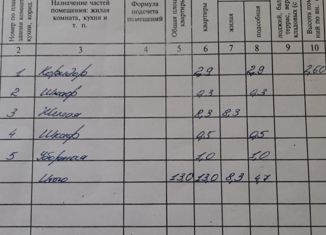 Номер по плану
здания комната,
кухни, корид.
Назначение частей
помещения: жилая
комната, кухни и
т. п.
Формула
подсчета
помещений
Общая площ.
квартиры
квартиры
жилая
подсобная
Высота
2 3 4 5 6 7 8 9 10
1 Коридор 2,9 2,9 2,60
2 Шкаф 0,3 0,3
3 Жилая 8,3 8,3
4 Шкаф 0,5 0,5
5 Уборная 1,0 1,0
Итого 13,0 13,0 8,3 4,7